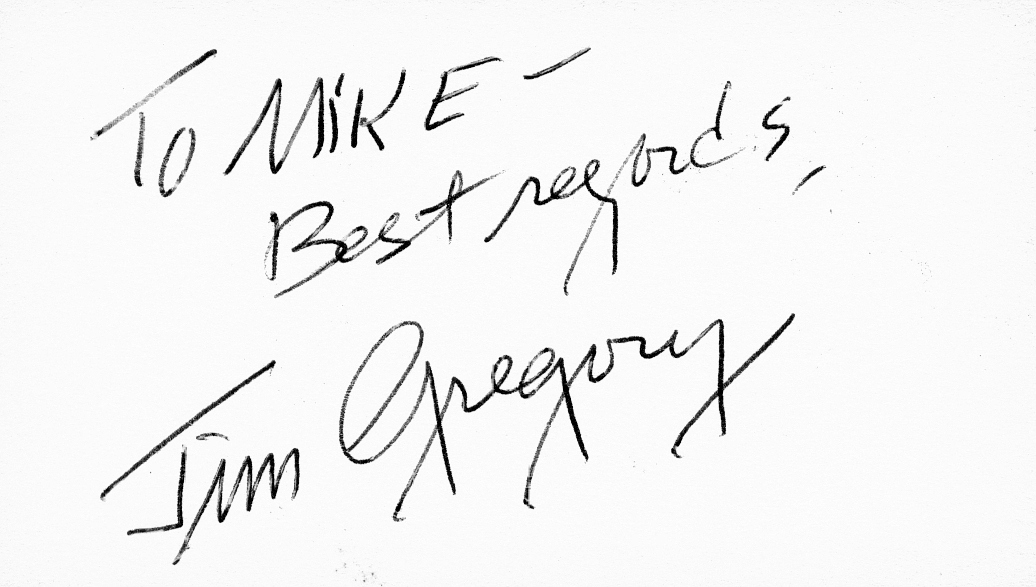 To MIKE -
Best regards,
Jim Gregory